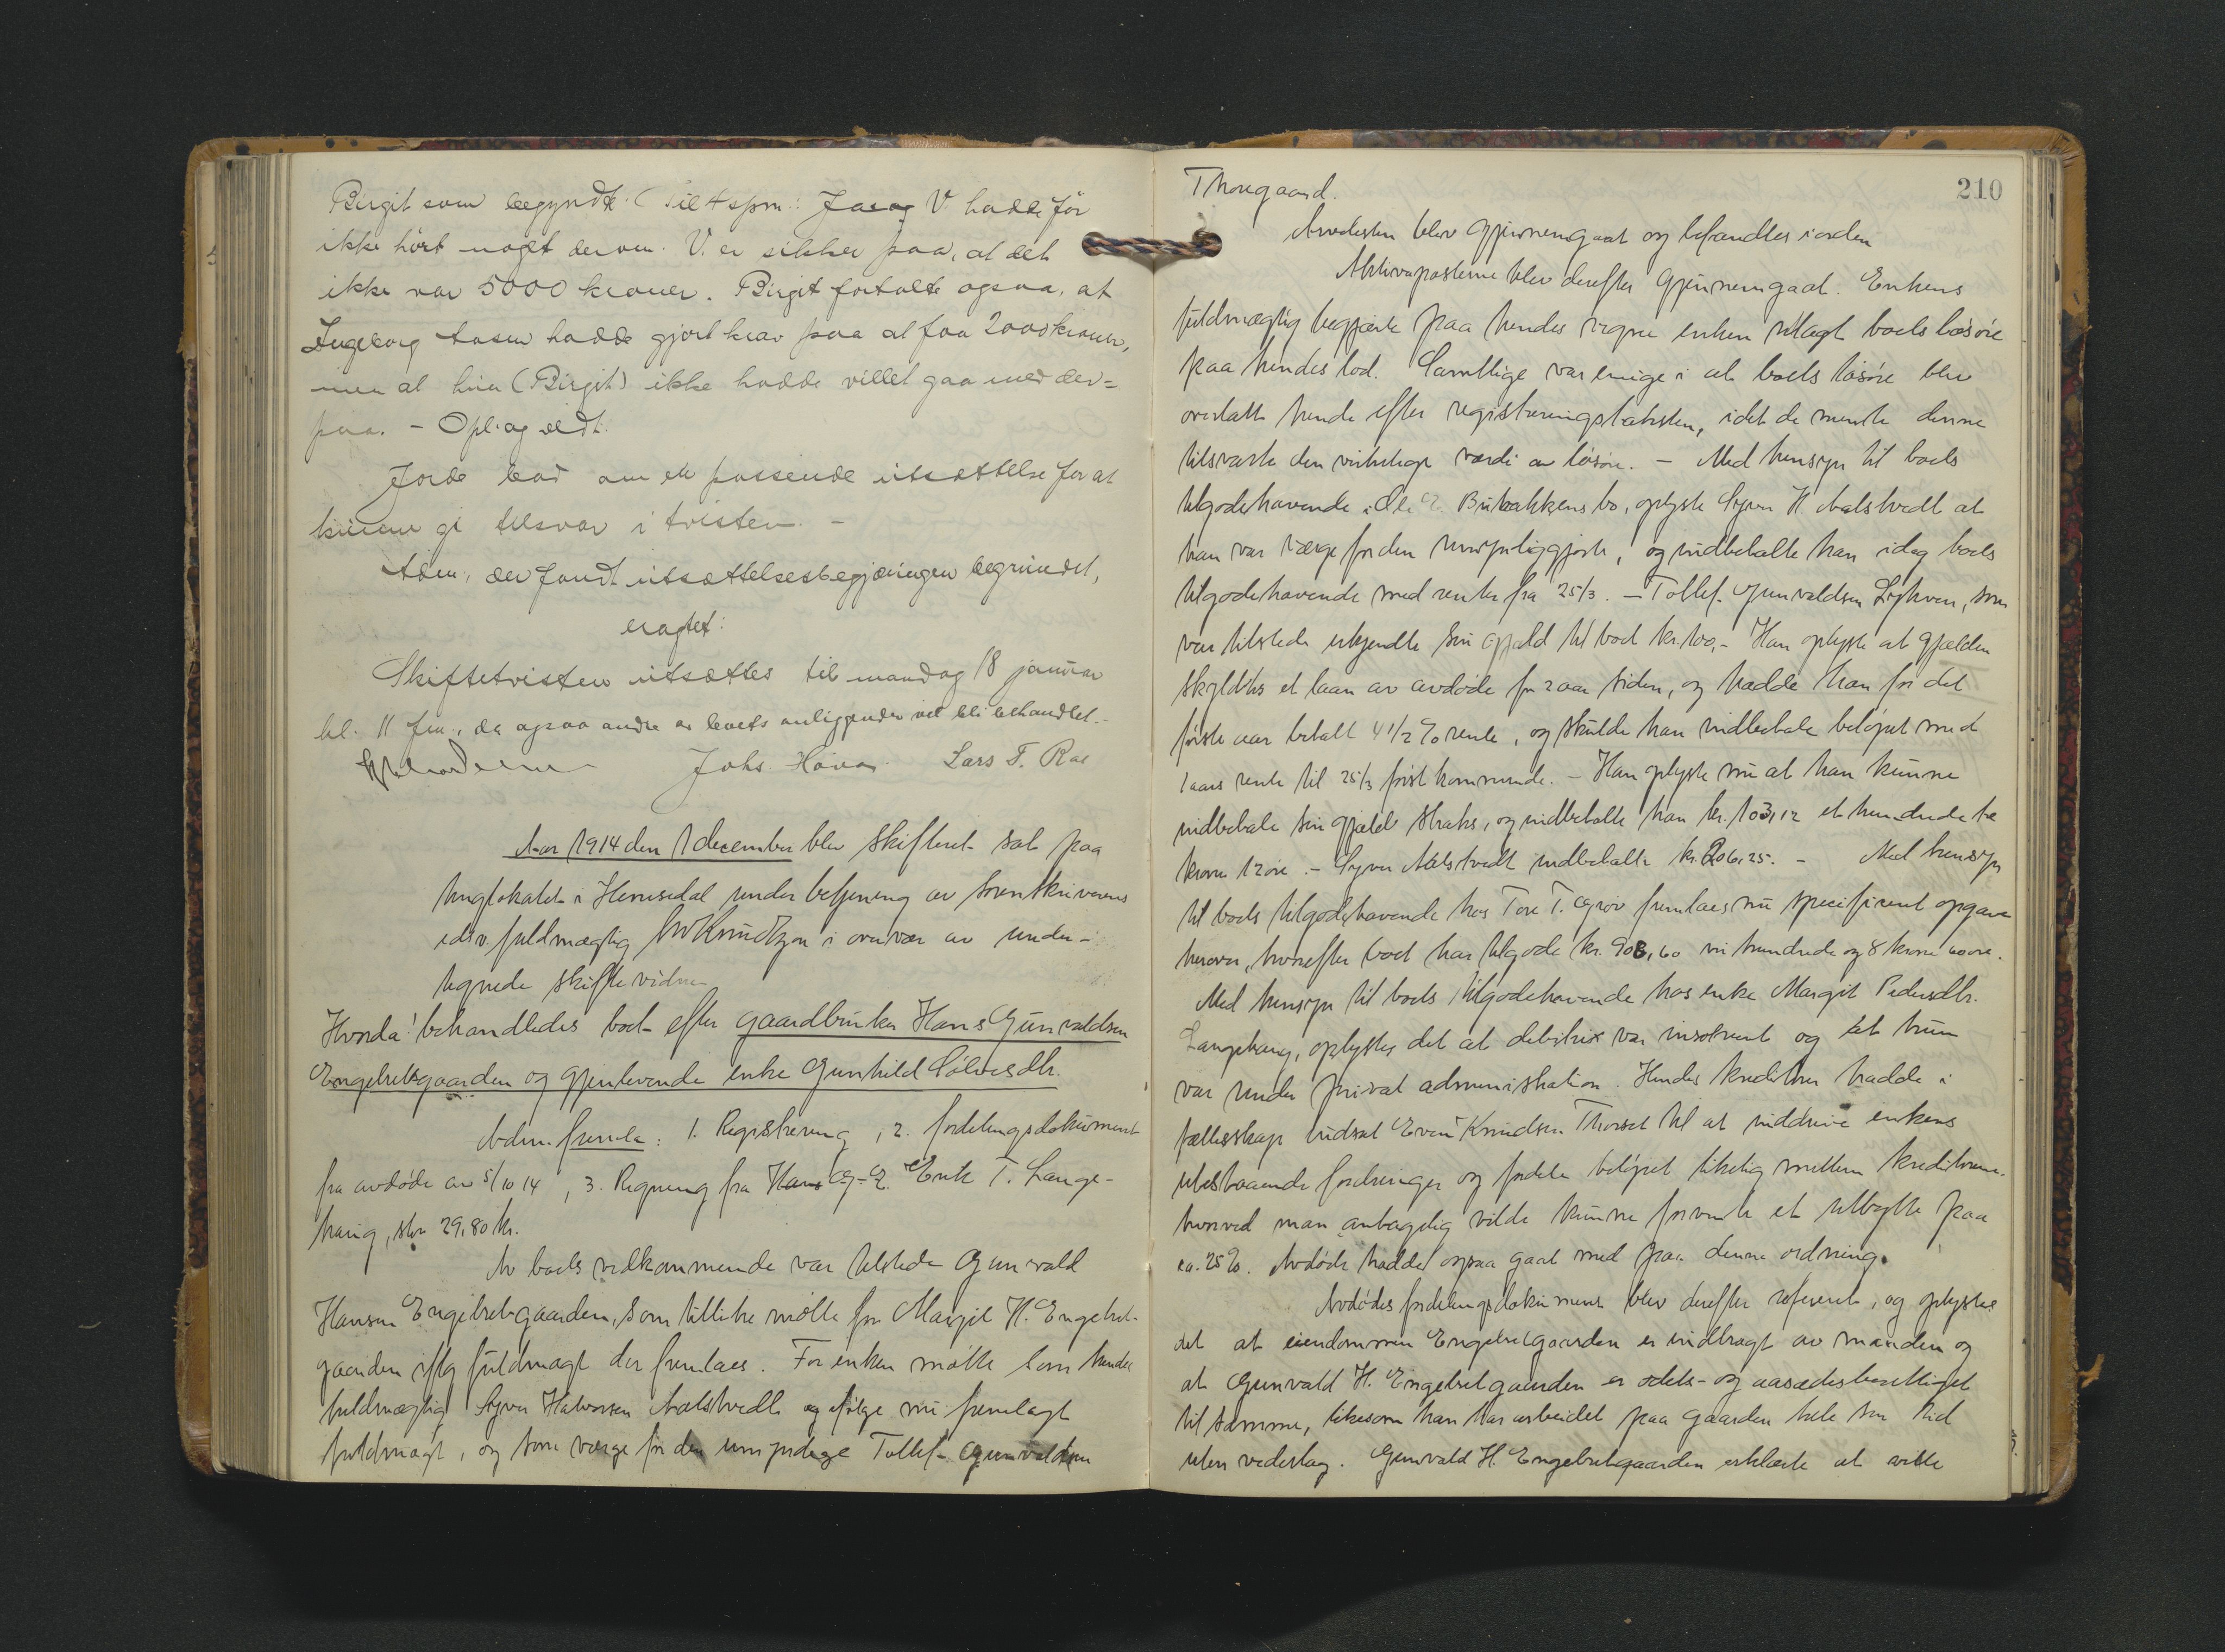 Birgit som begyndte. (Til 4 spm.: Jeg og V. hadde før
ikke hørt noget derom. V. er sikker paa, at det
ikke var 5000 kroner. Birgit fortalte ogsaa, at
Ingeborg Aasen hadde gjort krav paa at faa 2000 kroner,
men at hun (Birgit) ikke hadde villet gaa med der=
paa. – Opl. og vedt.
Jorde bad om en passende utsættelse for at
kunne gi tilsvar i tvisten. –
Adm. der fandt utsættelsesbegjæringen begrundet,
eragtet:
Skiftetvisten utsættes til mandag 18 januar
kl. 11 fm., da ogsaa andre av boets anliggender vil bli behandlet. –
Johs. Havn. Lars T. Rae
Aar 1914 den 1 december blev skifteret sat paa
tinglokalet i Hemsedal under betjening av sorenskriverens
edsv. fuldmægtig Knudtzon i overvær av under-
tegnede skiftevidner
Hvorda! behandledes boet efter gaardbruker Hans Gunvaldsen
Engebretsgaarden og gjenlevende enke Gunhild Sølvesdtr.
Adm. fremla: 1. Registrering, 2. fordelingsdokument
fra avdøde av 5/10 14, 3. Regning fra Hans G. E. Erik T. Lange-
haug, stor 29,80 kr.
Av boets vedkommende var tilstede Gunvald
Hansen Engebretsgaarden, som tillike møtte for Margit H. Engebret-
gaarden iflg fuldmagt der fremlaes. For enken møtte som hendes
fuldmægtig Syver Halvorsen Aalstvedt ifølge nu fremlagt
fuldmagt, og som værge for den umyndige Tollef Gunvaldsen
210
Thoregaard.
Arvelisten blev gjennemgaat og befandtes i orden
Aktivaposterne blev derefter gjennemgaat. Enkens
fuldmægtig begjærte paa hendes vegne enken utlagt boets løsøre
paa hendes lod. Samtlige var enige i at boets løsøre blev
overlatt hende efter registreringstaksten, idet de mente denne
tilsvarte den virkelige værdi av løsøre. – Med hensyn til boets
tilgodehavende i Ole E. Bubakkens bo, oplyste Syver H. Aalstvedt at
han var værge for den umyndiggjorte, og indbetalte han idag boets
tilgodehavende med renter fra 25/3. – Tollef Gunvaldsen Lykven, som
var tilstede erkjendte sin gjæld til boet kr. 100,- Han oplyste at gjælden
skyldtes et laan av avdøde for 2 aar siden, og hadde han for det
første aar betalt 4 1/2 % rente, og skulde han indbetale beløpet med
1 aars rente til 25/3 førstkommende. – Han oplyste nu at han kunne
indbetale sin gjæld straks, og indbetalte han kr. 103,12 et hundrede tre
kroner 12 øre. – Syver Aalstvedt indbetalte kr. 206,25. – Med hensyn
til boets tilgodehavende hos Tore T. Grøv fremlaes nu specificeret opgave
herover, hvorefter boet har tilgode kr. 908,60 ni hundrede og 8 kroner 60 øre.
Med hensyn til boets tilgodehavende hos enke Margit Pedersdtr.
Langehaug, oplystes det at debitrix var insolvent og at hun
var under privat administration. Hendes kreditorer hadde i
fællesskap indsat Even Knudsen Thorset til at inddrive enkens
utestaaende fordringer og fordele beløpet likelig mellem kreditorerne.
hvorved man antagelig vilde kunne forvente et utbytte paa
ca. 25%. Avdøde hadde ogsaa gaat med paa denne ordning.
Avdødes fordelingsdokument blev derefter referert, og oplystes
det at eiendommen Engebretgaarden er indbragt av manden og
at Gunvald H. Engebretgaarden er odels- og aasædesberettiget
til samme, likesom han har arbeidet paa gaarden hele sin tid
uten vederlag. Gunvald H. Engebretgaarden erklærte at ville